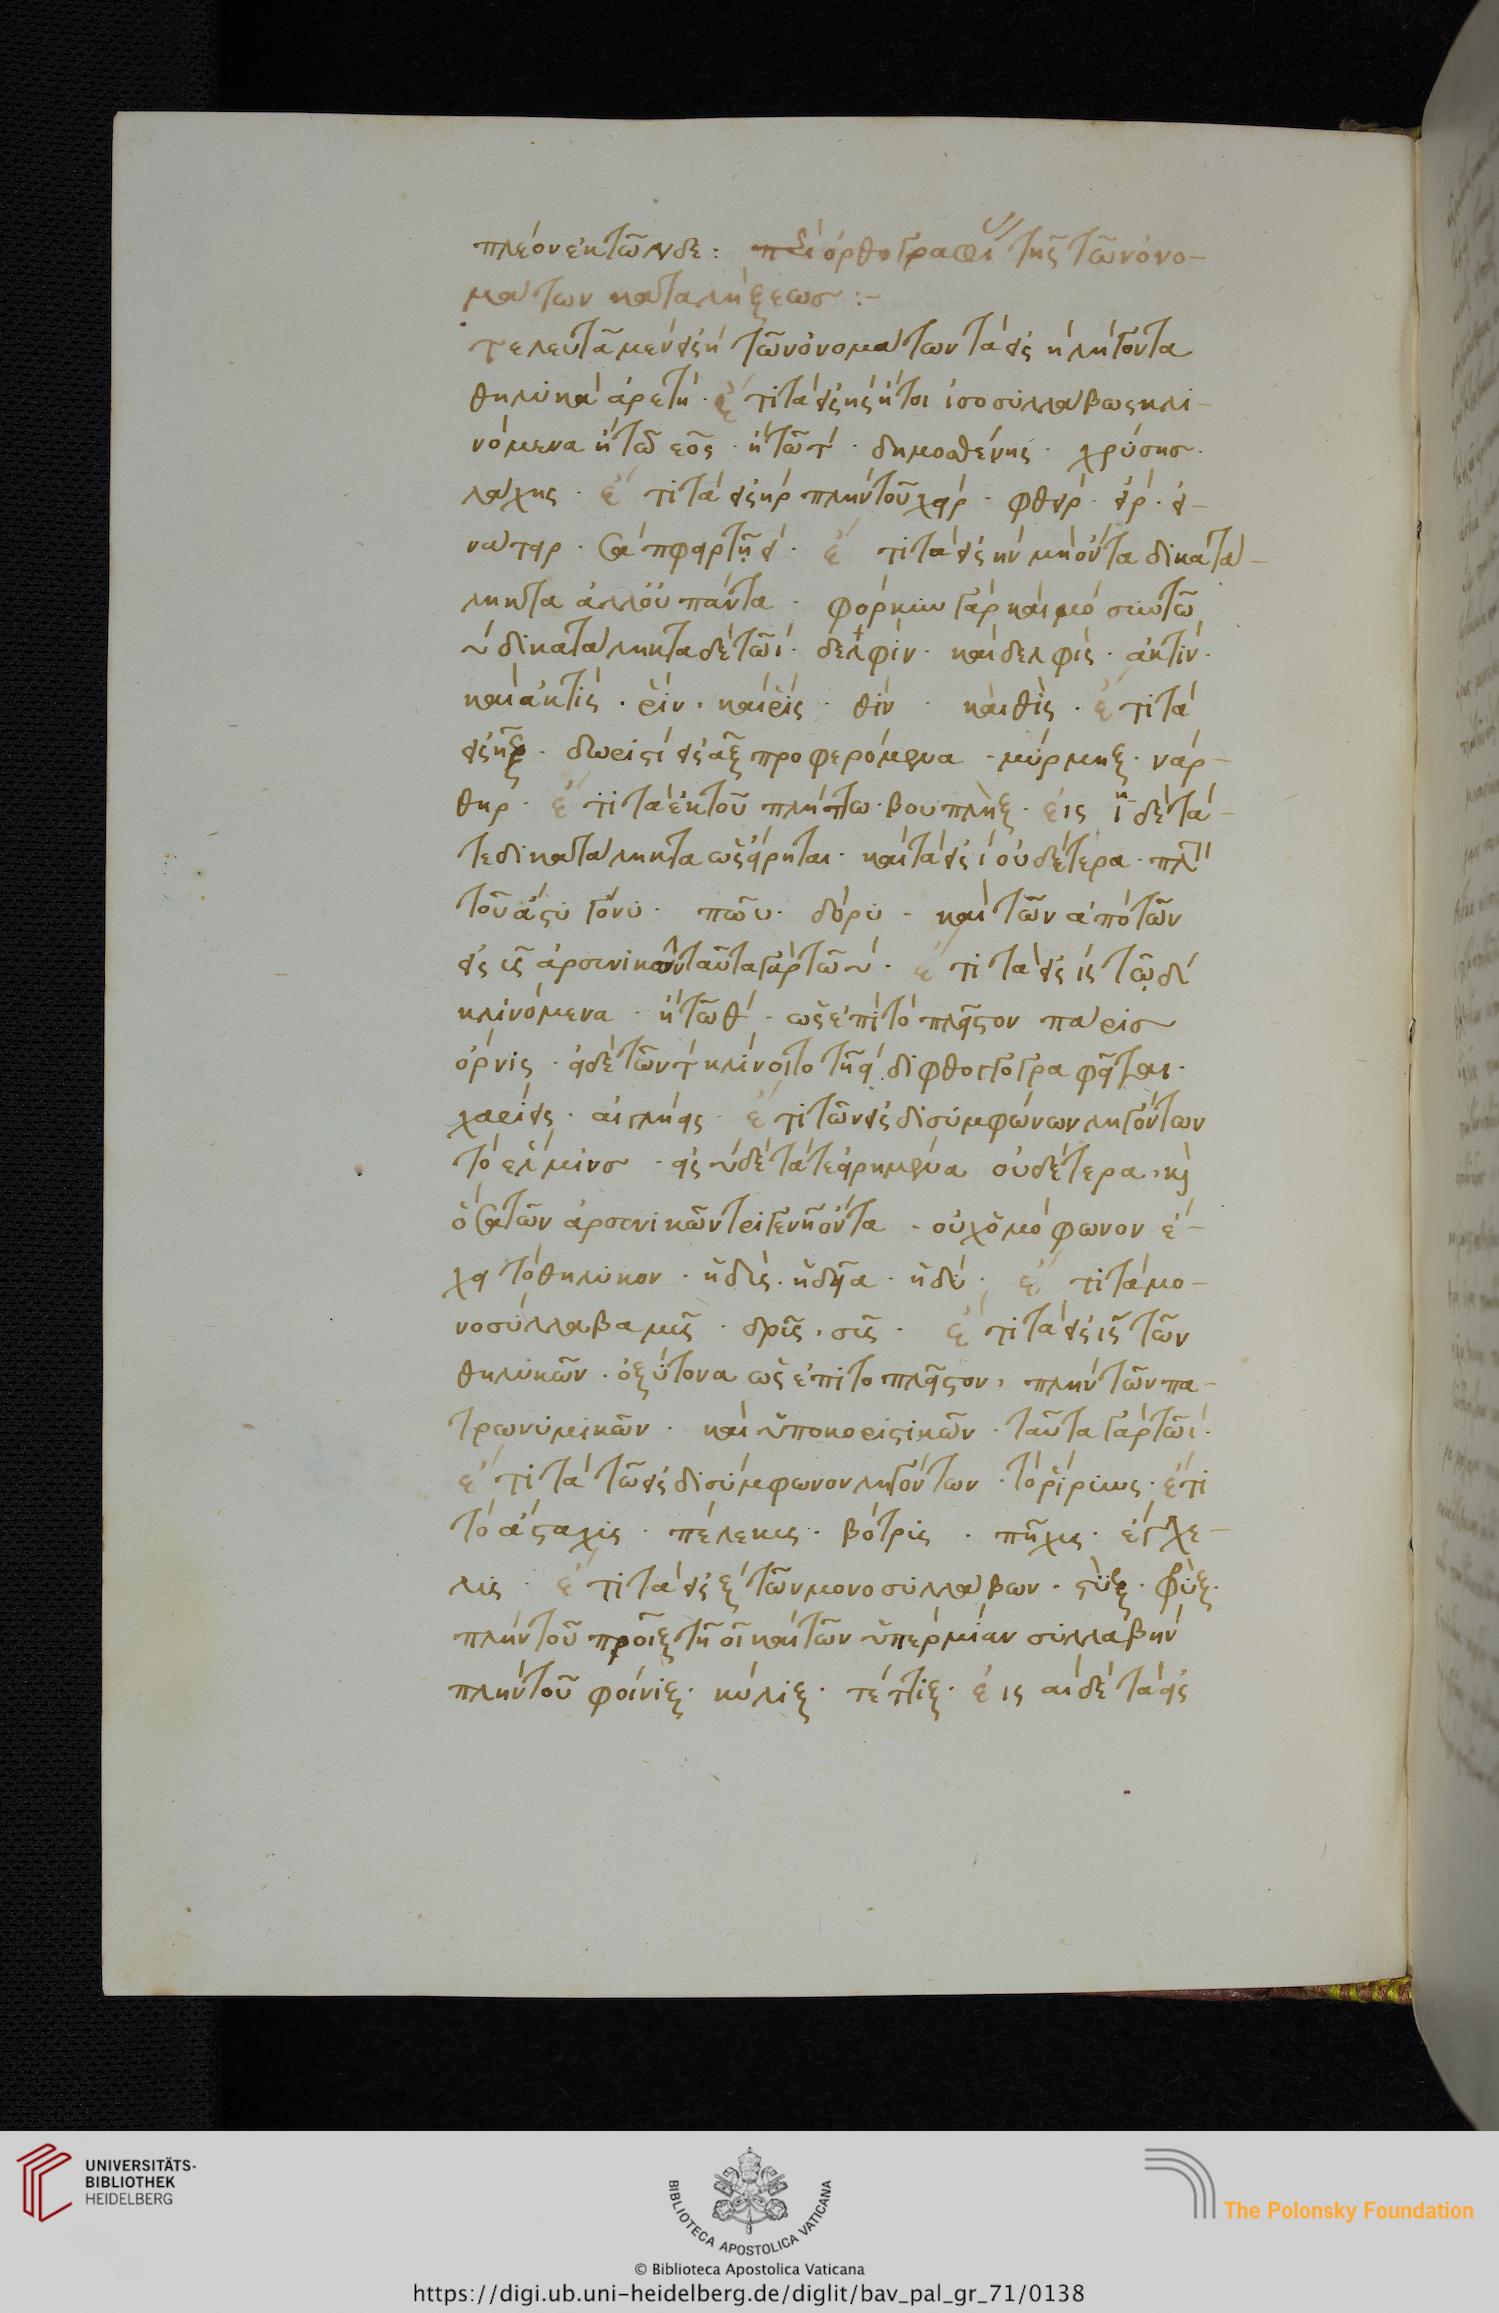 πλέον ἐκ τῶνδε : περὶ ὀρθογραφί τῆς τῶν ὀνο-
μάτων καταλήξεως :-
τελευτᾶ μὲν εἰς η τῶν ὀνομάτων τὰ εἰς η λήγοντα
θηλυκὰ ἀρετή · ἔτι τὰ εἰς ης ἤτοι ἰσοσυλλάβως κλι-
νόμενα ἢ τῶ εος · ἢ τῶ τ · δημοσθένης · χρύσης ·
λάχης · ἔτι τὰ εἰς ηρ πλὴν τοῦ χείρ · φθείρ · εἴρ · εἰ-
νάτειρ · σάπφειρ τῆ ει · ἔτι τὰ εἰς ην μὴ ὄντα δικατά-
ληκτα ἀλλ' οὐ πάντα · φόρκυν γὰρ καὶ μόσυν τῶ
υ δικατάληκτα δὲ τῶ ι · δελφίν · καὶ δελφίς · ἀκτίν ·
καὶ ἀκτίς · ῥίν · καὶ ῥίς · θίν · καὶ θίς · ἔτι τὰ
εἰς ηξ · δωριστὶ εἰς αξ προφερόμενα · μύρμηξ · νάρ-
θηξ · ἔτι τὰ ἐκ τοῦ πλήττω · βουπλήξ · εἰς ι δὲ τά
τε δικατάληκτα ὡς εἴρηται · καὶ τὰ εἰς ι οὐδέτερα · πλὴν
τοῦ ἄστυ γόνυ · πῶυ · δόρυ · καὶ τῶν ἀπὸ τῶν
εἰς υς ἀρσενικῶν ταῦτα γὰρ τῶ υ · ἔτι τὰ εἰς ις τῶ δι
κλινόμενα · ἢ τῶ θ · ὡς ἐπὶ τὸ πλεῖστον πάρις
ὄρνις · εἰ δὲ τῶ ντ κλίνοιτο τῆ ει διφθόγγο γράφεται ·
χαρίεις · αἰγλήεις · ἔτι τῶν εἰς δισύμφώνων ληγόντων
τὸ ἕλμινς · εἰς υ δὲ τά τε εἰρημένα οὐδέτερα · καὶ
ὅσα τῶν ἀρσενικῶν τριγενῆ ὄντα · οὐχ ὁμόφωνον ἔ-
χει τὸ θηλυκόν · ἡδύς · ἡδεῖα · ἡδύ · ἔτι τὰ μο-
νοσύλλαβα μῦς · δρῦς · σῦς · ἔτι τὰ εἰς υς τῶν
θηλυκῶν · ὀξύτονα ὡς ἐπὶ τὸ πλεῖστον · πλὴν τῶν πα-
τρωνυμικῶν · καὶ ὑποκοριστικῶν · ταῦτα γὰρ τῶ ι ·
ἔτι τὰ τῶ εἰς δισύμφωνον ληγόντων · τὸ τίρυνς · ἔτι
τὸ ἄσταχυς · πέλεκυς · βότρυς · πῆχυς · ἔγχε-
λυς · ἔτι τὰ εἰς ξ τῶν μονοσυλλάβων · στύξ · φύξ ·
πλὴν τοῦ προῖξ τῆ οι καὶ τῶν ὑπὲρ μίαν συλλαβὴν
πλὴν τοῦ φοίνιξ · κύλιξ · τέττιξ · εἰς αι δὲ τὰ εἰς
UNIVERSITÄTS-
BIBLIOTHEK
HEIDELBERG
BIBLIOTECA APOSTOLICA VATICANA
© Biblioteca Apostolica Vaticana
The Polonsky Foundation
https://digi.ub.uni-heidelberg.de/diglit/bav_pal_gr_71/0138